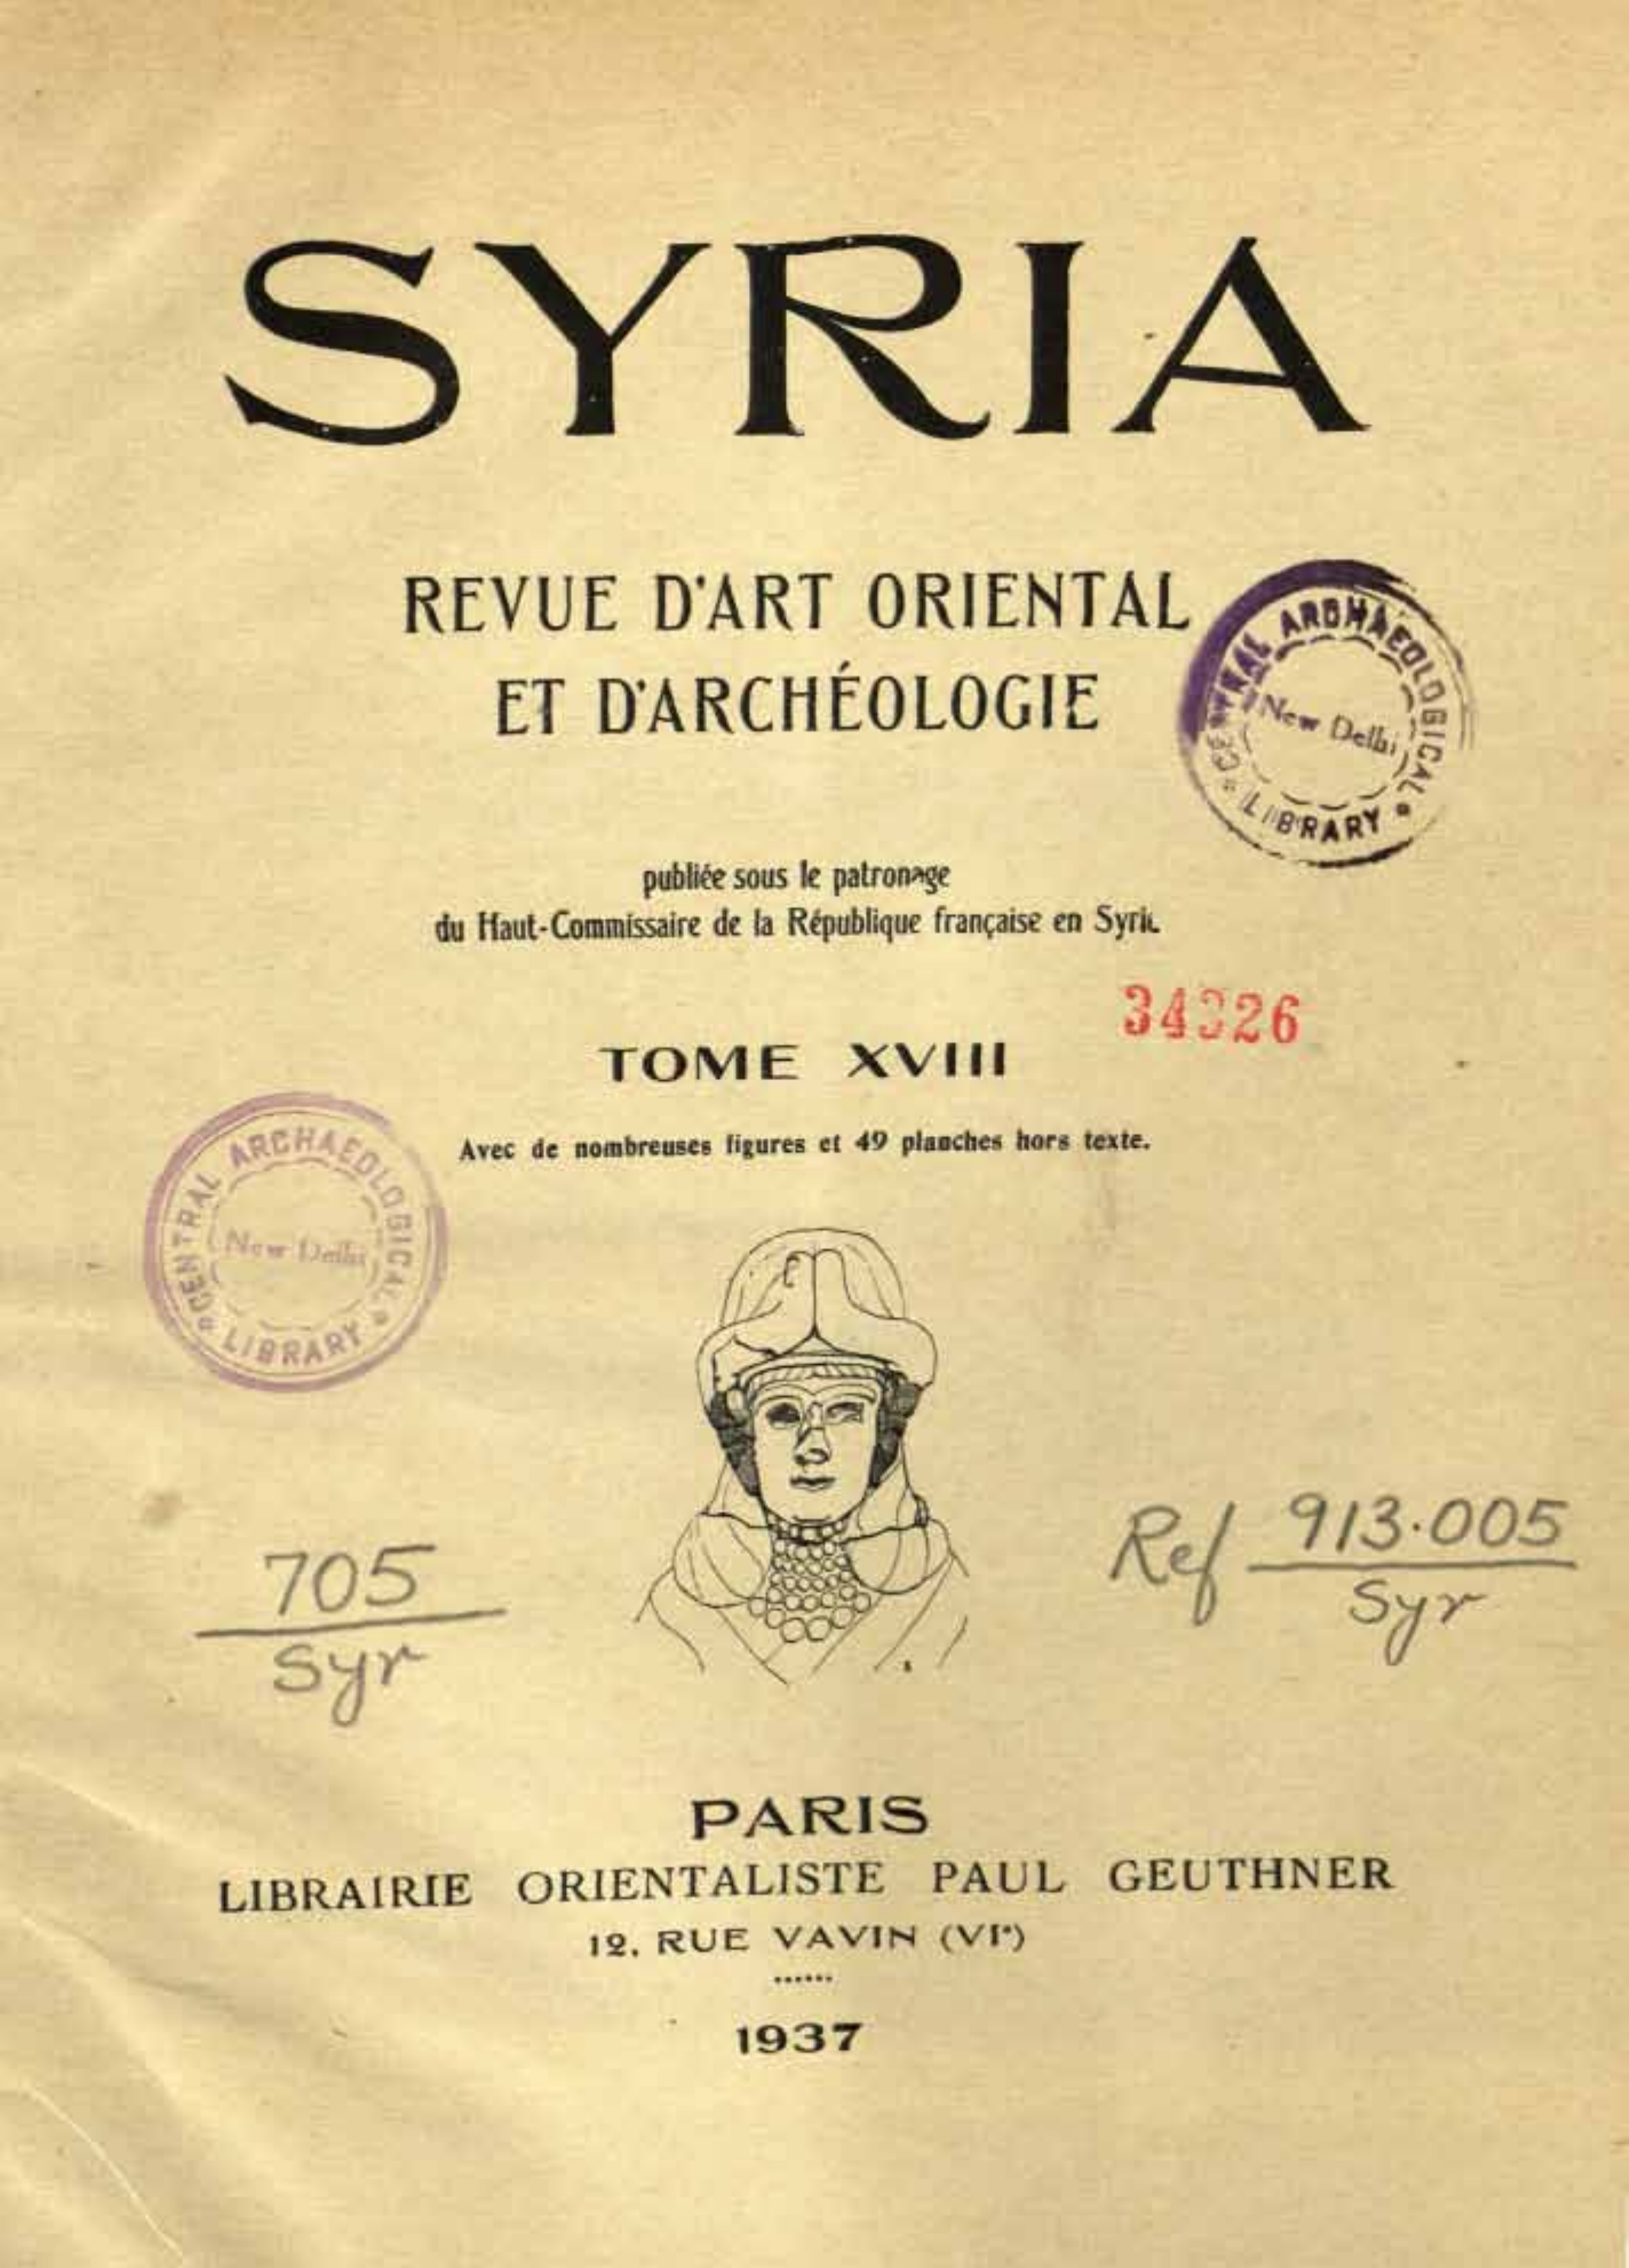 SYRIA
REVUE D'ART ORIENTAL
ET D'ARCHÉOLOGIE
CENTRAL ARCHAEOLOGICAL LIBRARY
New Delhi
publiée sous le patronage
du Haut-Commissaire de la République française en Syrie
TOME XVIII
Avec de nombreuses figures et 49 planches hors texte.
CENTRAL ARCHAEOLOGICAL LIBRARY
New Delhi
705
Syr
Ref 913.005
Syr
PARIS
LIBRAIRIE ORIENTALISTE PAUL GEUTHNER
12, RUE VAVIN (VIe)
1937